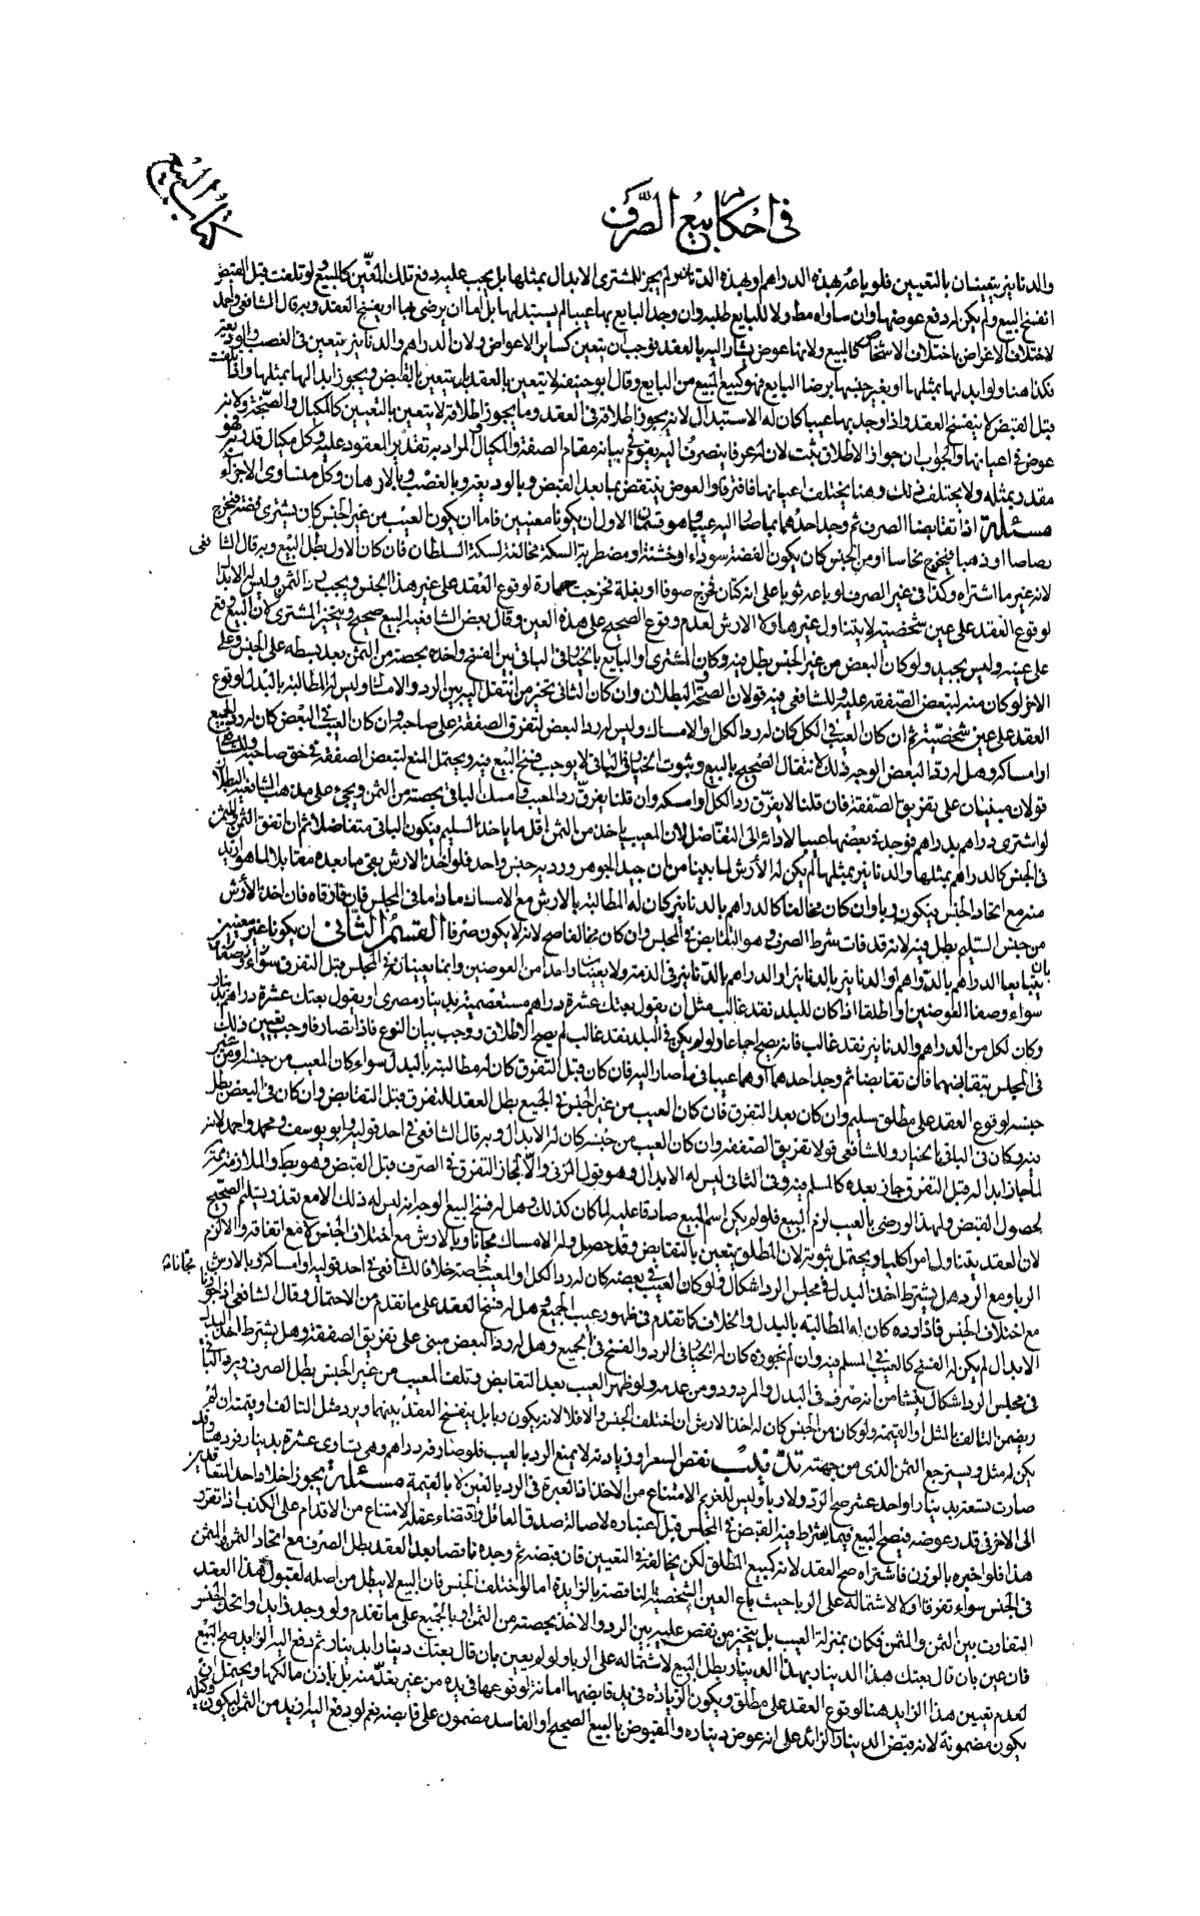 كتاب البيع
في احكام بيع الصرف
والدنانير يتعينان بالتعيين فلو باعه بهذه الدراهم او بهذه الدنانير لم يجز للمشترى الابدال بمثلها بل يجب عليه دفع تلك المعين كالمبيع ولو تلفت قبل القبض
انفسخ البيع ولم يكن له دفع عوضها وان ساواه مطلقا ولا للبايع طلبه وان وجد البايع بها عيبا لم يستبدلها بل اما ان يرضى بها او يفسخ العقد وبه قال الشافعي واحمد
لاختلاف الاغراض باختلاف الاشخاص كالمبيع ولانها عوض يشار اليه بالعقد فوجب ان يتعين كساير الاعواض ولان الدراهم والدنانير يتعين في الغصب والوديعة
فكذا هنا ولو ابدلها بمثلها او بغير جنسها برضا البايع فهو كبيع المبيع من البايع وقال ابو حنيفة لا يتعين بالعقد بل يتعين بالقبض ويجوز ابدالها بمثلها واذا تلفت
قبل القبض لا ينفسخ العقد واذا وجد بها عيبا كان له الاستبدال لانه يجوز اطلاقه في العقد وما يجوز اطلاقه لا يتعين بالتعيين كالمكيال والصنجة ولانه
عوض في اعيانها والجواب ان جواز الاطلاق يثبت لان له عرفا ينصرف اليه يقوم في بيانه مقام الصفة والمكيال والمراد به تقدير العقود عليه وكل مكيال قدر به فهو
مقدر بمثله ولا يختلف في ذلك وهنا يختلف اعيانها فافترقا والعوض ينتقض بما بعد القبض وبالوديعة وبالغصب وبالارهان وكل متساوي الاجزاء
مسئلة اذا تقابضا الصرف ثم وجد احدهما بما صار اليه عيبا وهو قسمان الاول ان يكونا معينين فاما ان يكون العيب من غير الجنس كان يشترى فضة فيخرج
رصاصا او ذهبا فيخرج نحاسا او من الجنس كان يكون الفضة سوداء او خشنة او مضطربة السكة مخالفة لسكة السلطان فان كان الاول بطل البيع وبه قال الشافعى
لانه غير ما اشتراه وكذا في غير الصرف لو باعه ثوبا على انه كتان فخرج صوفا او بغلة فخرجت حمارة لوقوع العقد على غير هذا الجنس ويجب رد الثمن وليس له الابدال
لوقوع العقد على عين شخصية لا يتناول غيرها ولا الارش لعدم وقوع الصحيح على هذه العين وقال بعض الشافعية البيع صحيح ويتخير المشترى لان البيع وقع
على عينه وليس بجيد ولو كان البعض من غير الجنس بطل فيه وكان للمشترى او البايع الخيار في الباقي بين الفسخ واخذه بحصته من الثمن بعد بسطه على الجنس وعلى
الاخر لو كان منه لتبعض الصفقة عليه وللشافعى فيه قولان الصحة والبطلان وان كان الثاني تخير من انتقل اليه بين الرد والامساك وليس له المطالبة بالبدل لوقوع
العقد على عين شخصية ثم ان كان العيب في الكل كان له رد الكل او الامساك وليس له رد البعض لتفرق الصفقة على صاحبه وان كان العيب في البعض كان له رد الجميع
او امساكه وهل له رد البعض الوجه ذلك لانتقال الصحيح بالبيع وثبوت الخيار في الباقي لا يوجب فسخ البيع فيه ويحتمل المنع لتبعض الصفقة في حق صاحبه وللشافعى
قولان مبنيان على تفريق الصفقة فان قلنا لا يفرق رد الكل او امسكه وان قلنا يفرق رد المعيب وامسك الباقي بحصته من الثمن ويجئ على مذهب الشافعية البطلان
لو اشترى دراهم بدراهم فوجد في بعضها عيبا لادائه الى التفاضل لان المعيب ياخذ من الثمن اقل ما ياخذ السليم فيكون الباقي متفاضلا ثم ان اتفق الثمن والمثمن
في الجنس كالدراهم بمثلها والدنانير بمثلها لم يكن له الأرش لما بينا من ان جيد الجوهر ورديه جنس واحد فلو اخذ الارش بقي ما بعده مقابلا لما هو ازيد
منه مع اتحاد الجنس فيكون ربا وان كان مخالفا كالدراهم بالدنانير كان له المطالبة بالارش مع الامساك ما داما في المجلس فان فارقاه فان اخذ الأرش
من جنس السليم بطل فيه لانه قد فات شرط الصرف وهو التقابض في المجلس وان كان مخالفا صح لانه لا يكون صرفا القسم الثاني ان يكونا غير معينين
بان يتبايعا الدراهم بالدراهم او الدنانير بالدنانير او الدراهم بالدنانير في الذمة ولا يعينا واحدا من العوضين وانما يعينان في المجلس قبل التفرق سواء وصفا
سواء وصفا العوضين او اطلقا اذا كان للبلد نقد غالب مثل ان يقول بعتك عشرة دراهم مستعصمية بدينار مصرى او يقول بعتك عشرة دراهم بدينار
وكان لكل من الدراهم والدنانير نقد غالب فانه يصح اجماعا ولو لم يكن في البلد نقد غالب لم يصح الاطلاق ووجب بيان النوع فاذا تصارفا وجب تعيين ذلك
في المجلس بتقابضهما فان تقابضا ثم وجد احدهما او هما عيبا فيما صار اليه فان كان قبل التفرق كان له مطالبته بالبدل سواء كان المعيب من جنسه او من غير
جنسه لوقوع العقد على مطلق سليم وان كان بعد التفرق فان كان العيب من غير الجنس في الجميع بطل العقد للتفرق قبل التقابض وان كان في البعض بطل
فيه وكان في الباقي بالخيار وللشافعى قولا تفريق الصفقة وان كان العيب من جنسه كان له الابدال وبه قال الشافعى في احد قوليه وابو يوسف ومحمد واحمد لانه
لما جاز ابداله قبل التفرق جاز بعده كالمسلم فيه وفي الثاني ليس له الابدال وهو قول المزني والا لجاز التفرق في الصرف قبل القبض وهو يبطله والملازمة ممنوعة
لحصول القبض ولهذا لو رضى بالعيب لزم البيع فلو لم يكن اسم المبيع صادقا عليه لما كان كذلك وهل له فسخ البيع الوجه انه ليس له ذلك الا مع تعذر تسليم الصحيح
لان العقد يتناول امرا كليا ويحتمل ثبوته لان المطلق يتعين بالتقابض وقد حصل وله الامساك مجانا وبالارش مع اختلاف الجنس لا مع اتفاقه والا لزم
الربا ومع الرد هل يشترط اخذ البدل في مجلس الرد اشكال ولو كان العيب في بعضه كان له رد الكل او المعيب خاصة خلافا للشافعى في احد قوليه وامساكه وبالارش مجانا
مع اختلاف الجنس فاذا رده كان له المطالبة بالبدل والخلاف كما تقدم في ظهور عيب الجميع وهل له فسخ العقد على ما تقدم من الاحتمال وقال الشافعي اذا جوزنا
الابدال لم يكن له الفسخ كالعيب في المسلم فيه وان لم نجوزه كان له الخيار في الرد والفسخ في الجميع وهل له رد البعض مبنى على تفريق الصفقة وهل يشترط اخذ البدل
في مجلس الرد اشكال ينشأ من انه صرف في البدل والمردود ومن عدمه ولو ظهر العيب بعد التقابض وتلف المعيب من غير الجنس بطل الصرف ويرد الباقي
ويضمن التالف بالمثل او القيمة ولو كان من الجنس كان له اخذ الارش ان اختلف الجنس والا فلا لانه يكون ربا بل ينفسخ العقد بينهما ويرد مثل التالف او قيمته ان لم
يكن له مثل ويسترجع الثمن الذى من جهته تذنيب نقص السعر او زيادته لا يمنع الرد بالعيب فلو صارفه دراهم وهي تساوى عشرة بدينار فردها وقد
صارت تسعة بدينار او احد عشر صح الرد ولا ربا وليس للغريم الامتناع من الاخذ اذ العبرة في الرد بالعين لا بالقيمة مسئلة يجوز اخلاد احد المتعاقدين
الى الاخر في قدر عوضه فيصح البيع فيما يشترط فيه القبض في المجلس قبل اعتباره لاصالة صدق العاقل واقتضاء عقله الامتناع من الاقدام على الكذب اذا تقرر
هذا فلو اخبره بالوزن فاشتراه صح العقد لانه كبيع المطلق لكن يخالفه في التعيين فان قبضه ثم وجده ناقصا بعد العقد بطل الصرف مع اتحاد الثمن والمثمن
في الجنس سواء تفرقا او لا لاشتماله على الربا حيث باع العين الشخصية الناقصة بالزايدة اما لو اختلف الجنس فان البيع لا يبطل من اصله لقبول هذا العقد
التفاوت بين الثمن والمثمن فكان بمنزلة العيب بل يتخير من نقص عليه بين الرد والاخذ بحصته من الثمن او بالجميع على ما تقدم ولو وجد زايدا واتحد الجنس
فان عين بان قال بعتك هذا الدينار بهذا الدينار بطل البيع لاشتماله على الربا ولو لم يعين بان قال بعتك دينارا بدينار ثم دفع اليه الزايد صح البيع
لعدم تعيين هذا الزايد هنا لوقوع العقد على مطلق ويكون الزيادة في يد قابضها امانة لوقوعها في يده من غير تعد منه بل باذن مالكها ويحتمل ان
يكون مضمونة لانه قبض الدينار الزائد على انه عوض ديناره والمقبوض بالبيع الصحيح او الفاسد مضمون على قابضه نعم لو دفع اليه ازيد من الثمن ليكون وكيله